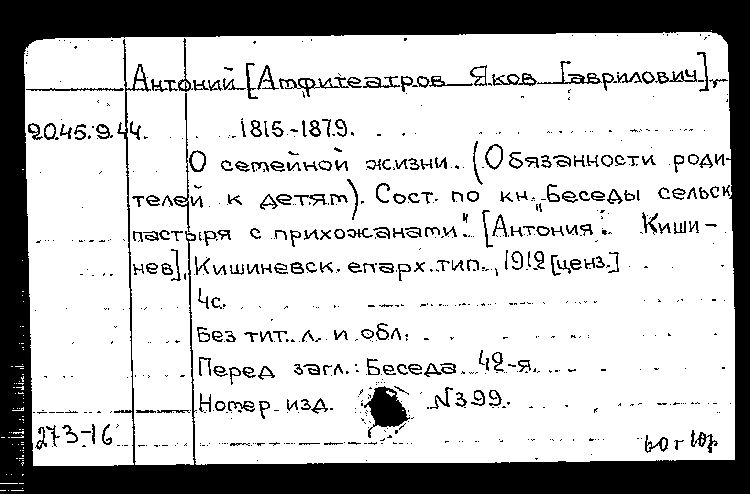 Антоний [Амфитеатров Яков Гаврилович],
20.45.9.44. 1815-1879.
О семейной жизни. (Обязанности роди-
телей к детям). Сост. по кн. "Беседы сельск
пастыря с прихожанами." [Антония. Киши-
нев], Кишиневск. епарх. тип., 1912 [ценз.]
4с.
Без тит. л. и обл.
Перед загл.: Беседа 42-я.
Номер изд. №399.
273-16